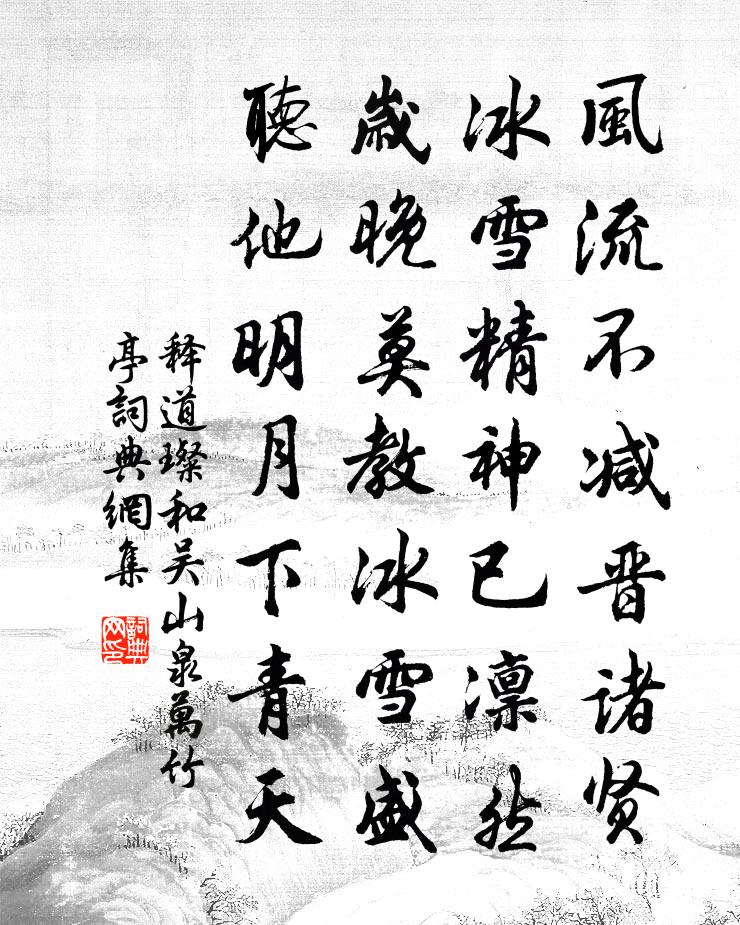 風流不减晋诸贤
冰雪精神已凛然
歲晚莫教冰雪盛
聽他明月下青天
释道璨和吴山泉萬竹
亭詞典網集
詞典
网印